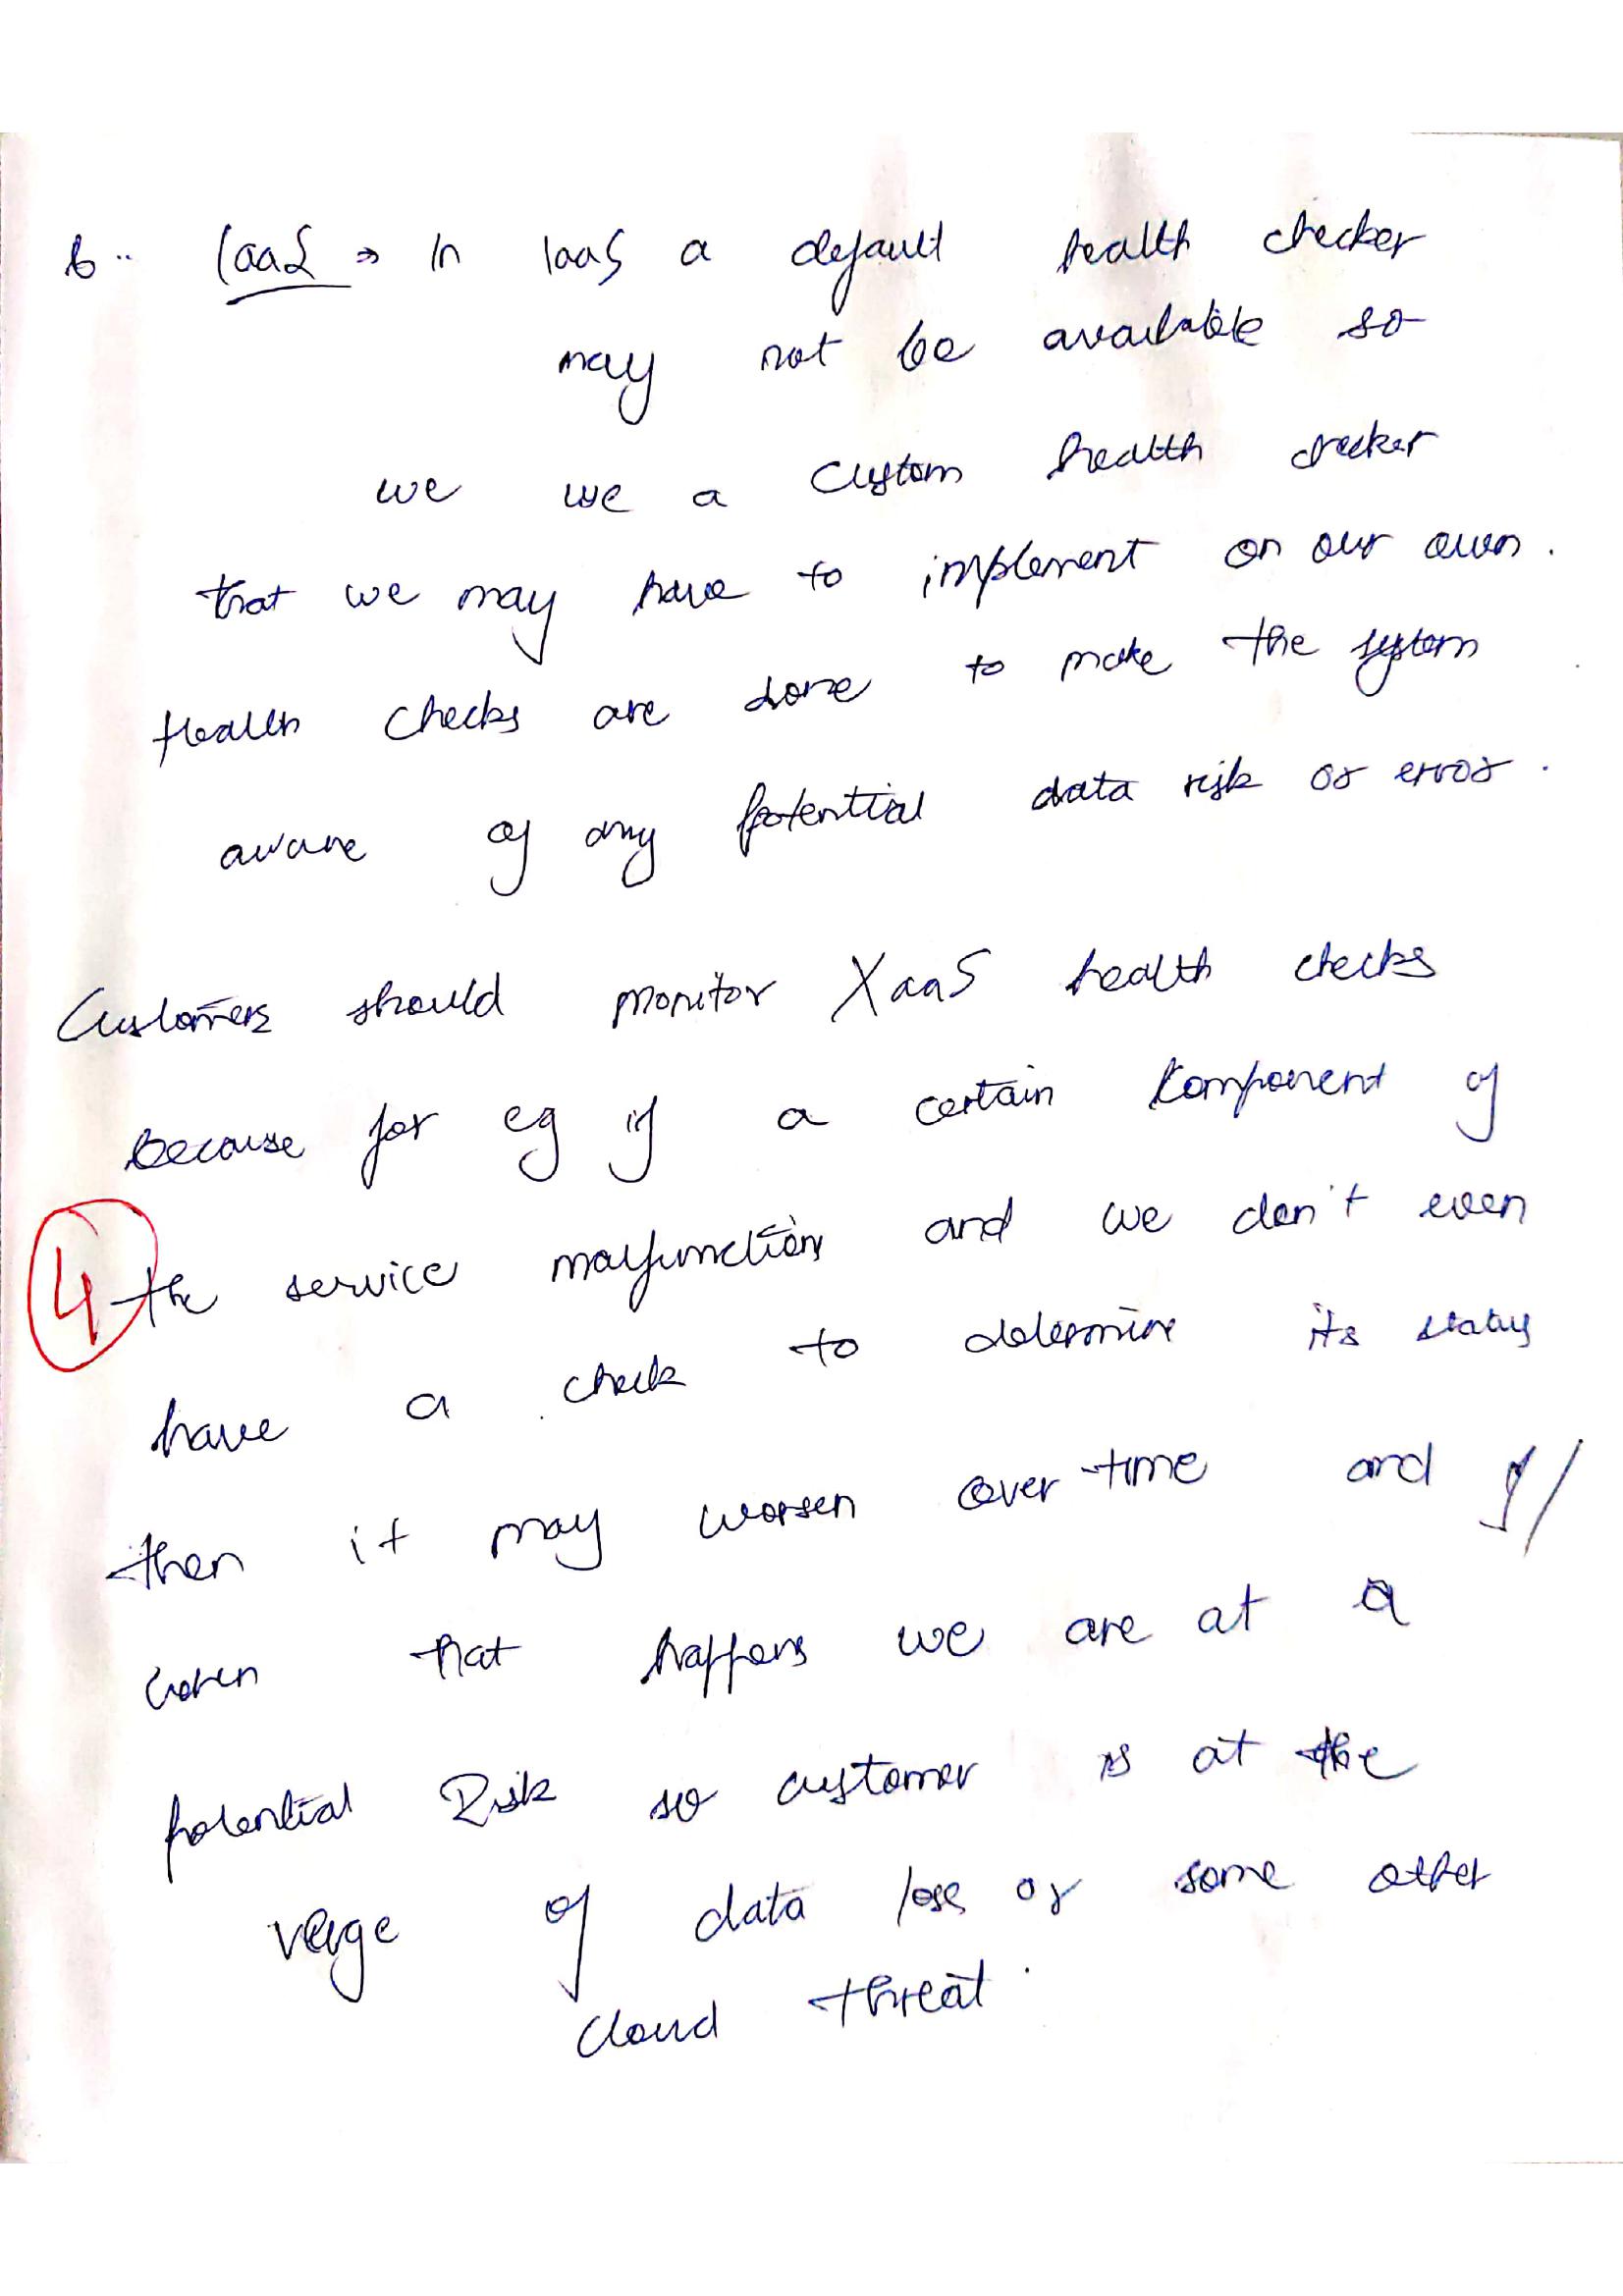 b.. IaaS ⇒ In IaaS a default health checker
may not be available so
we use a custom health checker
that we may have to implement on our own.
Health checks are done to make the system
aware of any potential data risk or error.
Customers should monitor XaaS health checks
because for eg if a certain component of
4 the service malfunctions and we don't even
have a check to determine its status
then it may worsen over time and
when that happens we are at a
potential Risk so customer is at the
verge of data lose or some other
cloud threat.